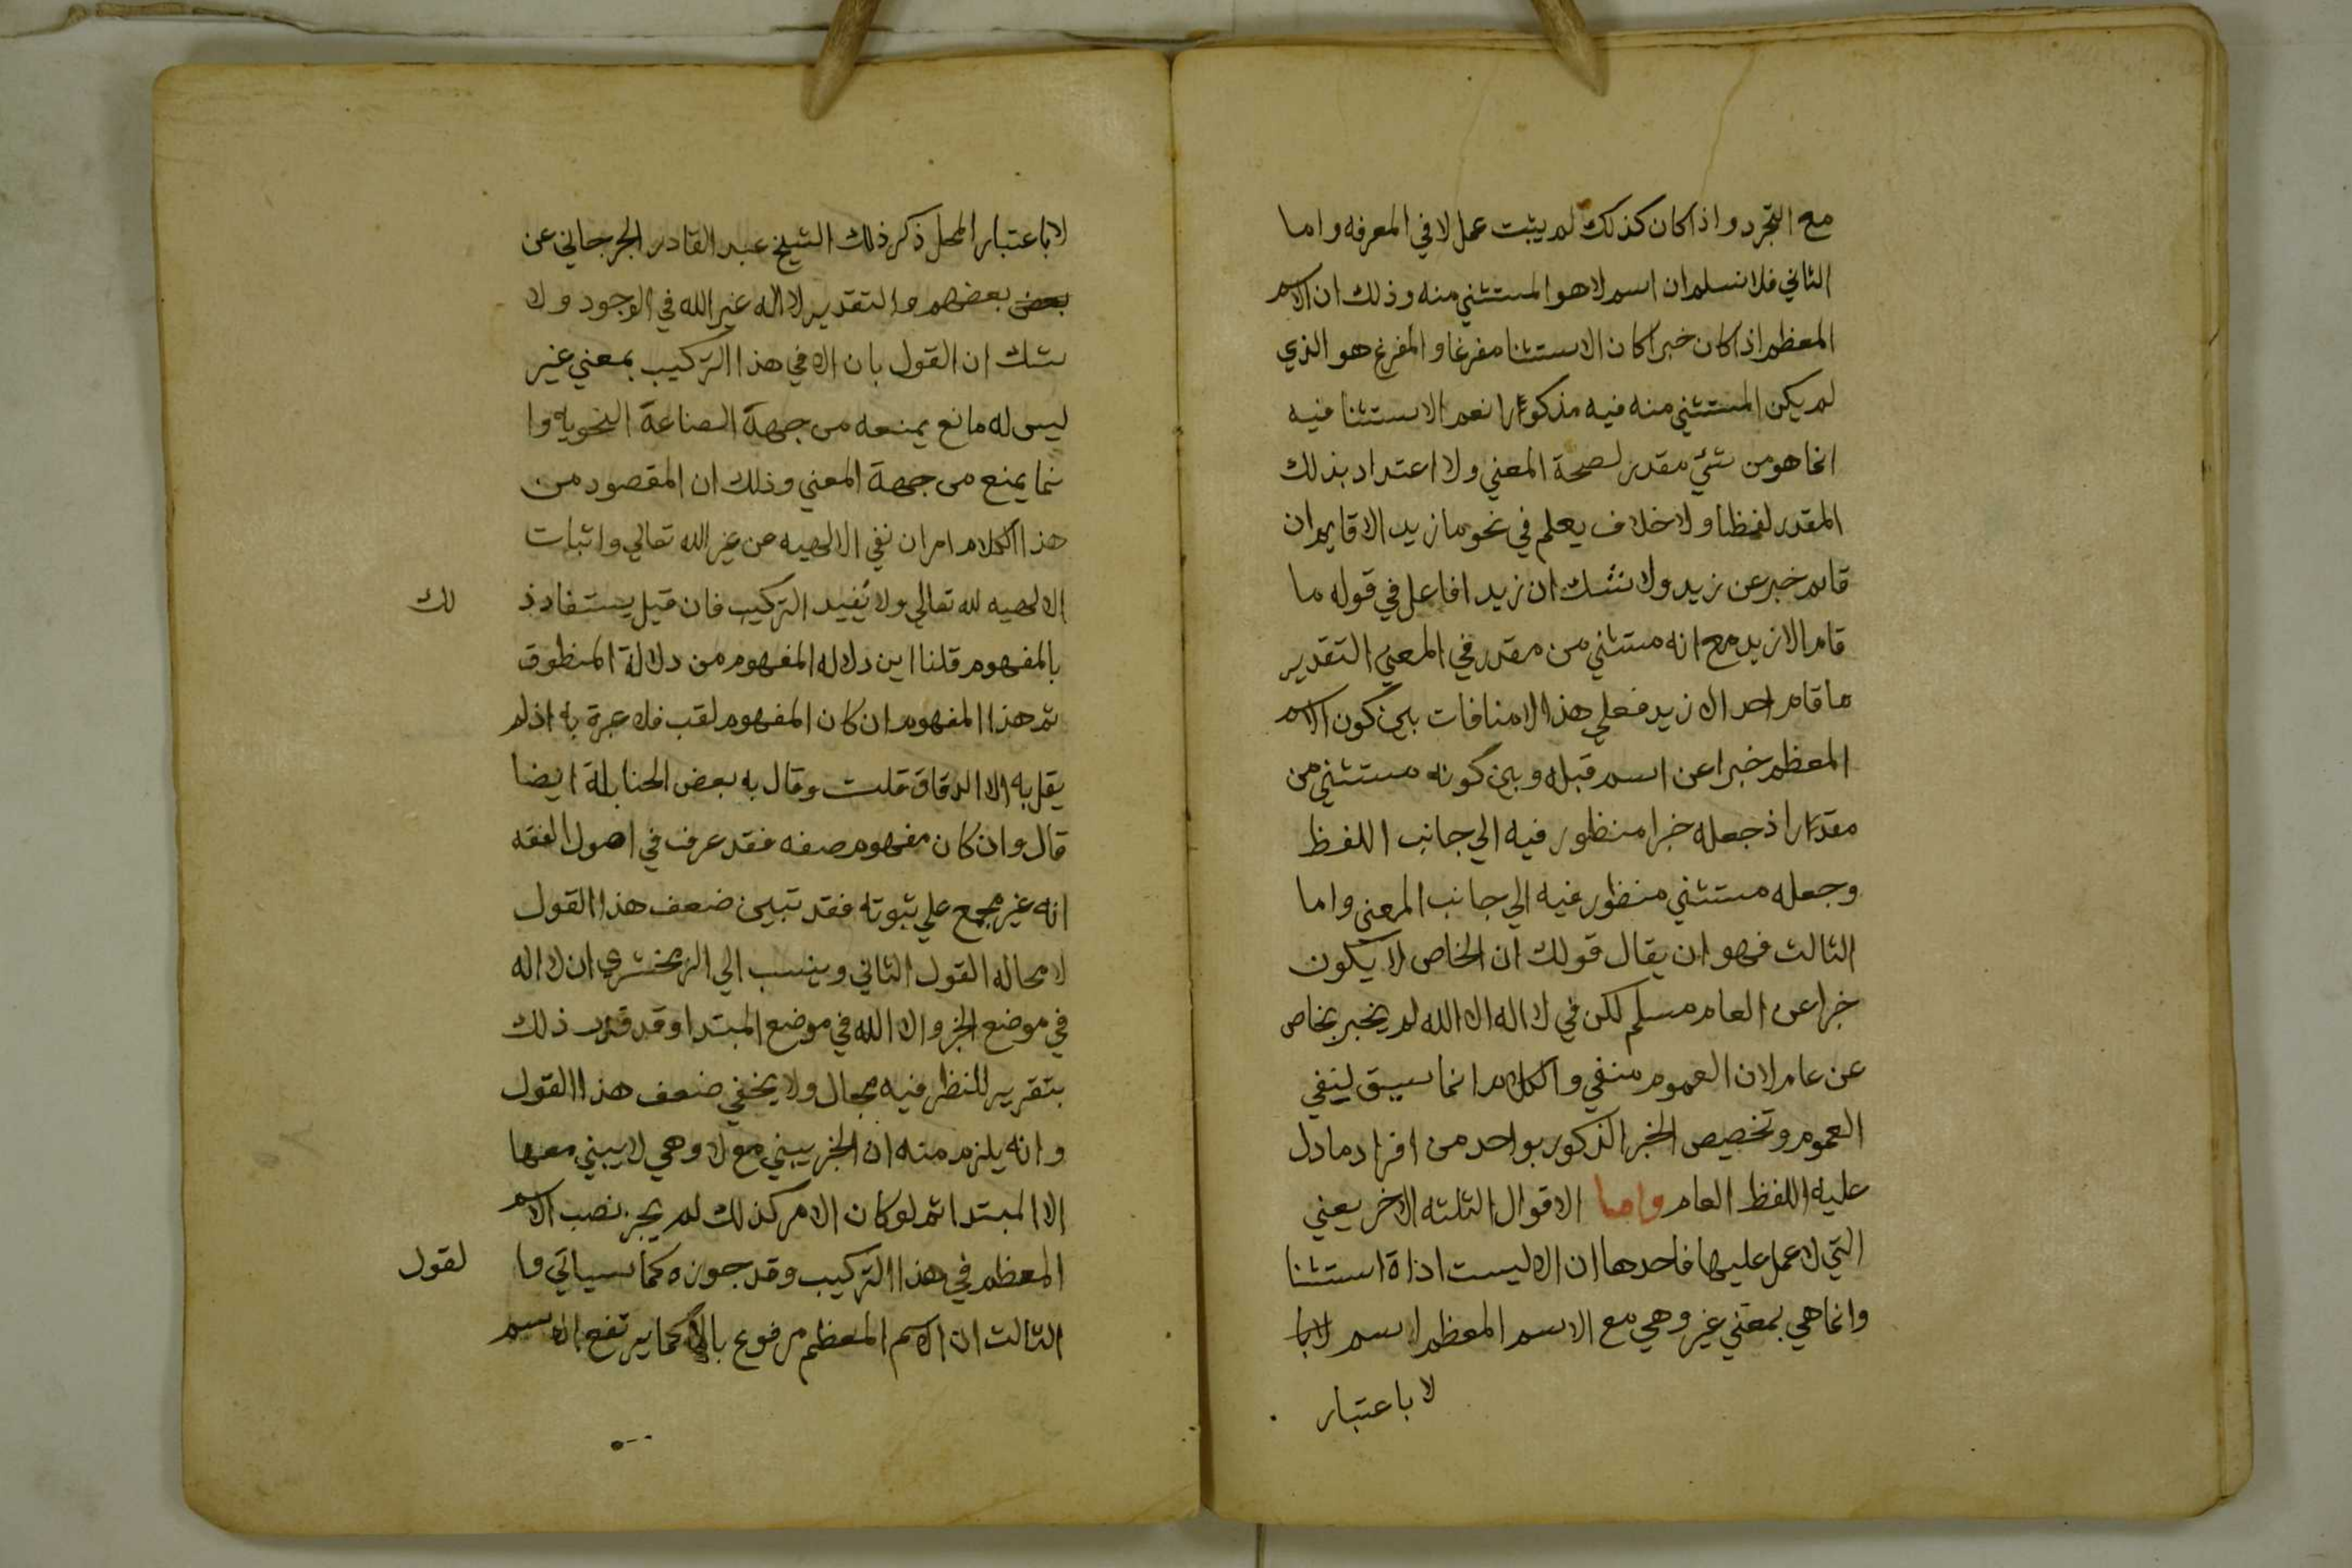 مع التجرد واذا كان كذلك لم يثبت عمل لا في المعرفه واما
الثاني فلا نسلم ان اسم لا هو المستثني منه وذلك ان الاسم
المعظم اذا كان خبرا كان الاستثنا مفرغا والمفرغ هو الذي
لم يكن المستثني منه فيه مذكورا نعم الاستثنا فيه
انما هو من شئ مقدر لصحة المعني ولا اعتداد بذلك
المقدر لفظا ولا خلاف يعلم في نحو ما زيد الا قايم ان
قايم خبر عن زيد ولا نشك ان زيدا فاعل في قوله ما
قام الا زيد مع انه مستثني من مقدر في المعني التقدير
ما قام احد الا زيد فعلي هذا لا منافات بين كون الاسم
المعظم خبرا عن اسم قبله وبين كونه مستثني من
مقدر اذ جعله خبرا منظور فيه الي جانب اللفظ
وجعله مستثني منظور فيه الي جانب المعني واما
الثالث فهو ان يقال قولك ان الخاص لا يكون
خبرا عن العام مسلم لكن في لا اله الا الله لم يخبر بخاص
عن عام لان العموم منفي والكلام انما سيق لينفي
العموم وتخصيص الخبر المذكور بواحد من افراد ما دل
عليه اللفظ العام واما الاقوال الثلثه الاخر يعني
التي لا عمل عليها فاحدها ان الا ليست اداة استثنا
وانما هي بمعني غير وهي مع الاسم المعظم اسم لا با
لا باعتبار
لا باعتبار المحل ذكر ذلك الشيخ عبد القادر الجرجاني عن
بعض بعضهم والتقدير لا اله غير الله في الوجود ولا
شك ان القول بان الا في هذا التركيب بمعني غير
ليس له مانع يمنعه من جهة الصناعة النحويه وا
نما يمنع من جهة المعني وذلك ان المقصود من
هذا الكلام امران نفي الالهيه عن غير الله تعالي واثبات
الالهيه لله تعالي ولا يفيد التركيب فان قيل يستفاد ذ لك
بالمفهوم قلنا اين دلاله المفهوم من دلالة المنطوق
ثم هذا المفهوم ان كان المفهوم لقب فلا عبرة به اذ لم
يقل به الا الدقاق قلت وقال به بعض الحنابلة ايضا
قال وان كان مفهوم صفه فقد عرف في اصول الفقه
انه غير مجمع علي ثبوته فقد تبين ضعف هذا القول
لا محاله القول الثاني وينسب الي الزمخشري ان لا اله
في موضع الخبر والا الله في موضع المبتدا وقد قدر ذلك
بتقرير للنظر فيه مجال ولا يخفي ضعف هذا القول
وانه يلزم منه ان الخبر يبني مع لا وهي لا يبني معها
الا المبتدا ثم لو كان الامر كذلك لم يجز نصب الاسم
المعظم في هذا التركيب وقد جوزه كما سياتي وا لقول
الثالث ان الاسم المعظم مرفوع بالاه كما يرتفع الاسم